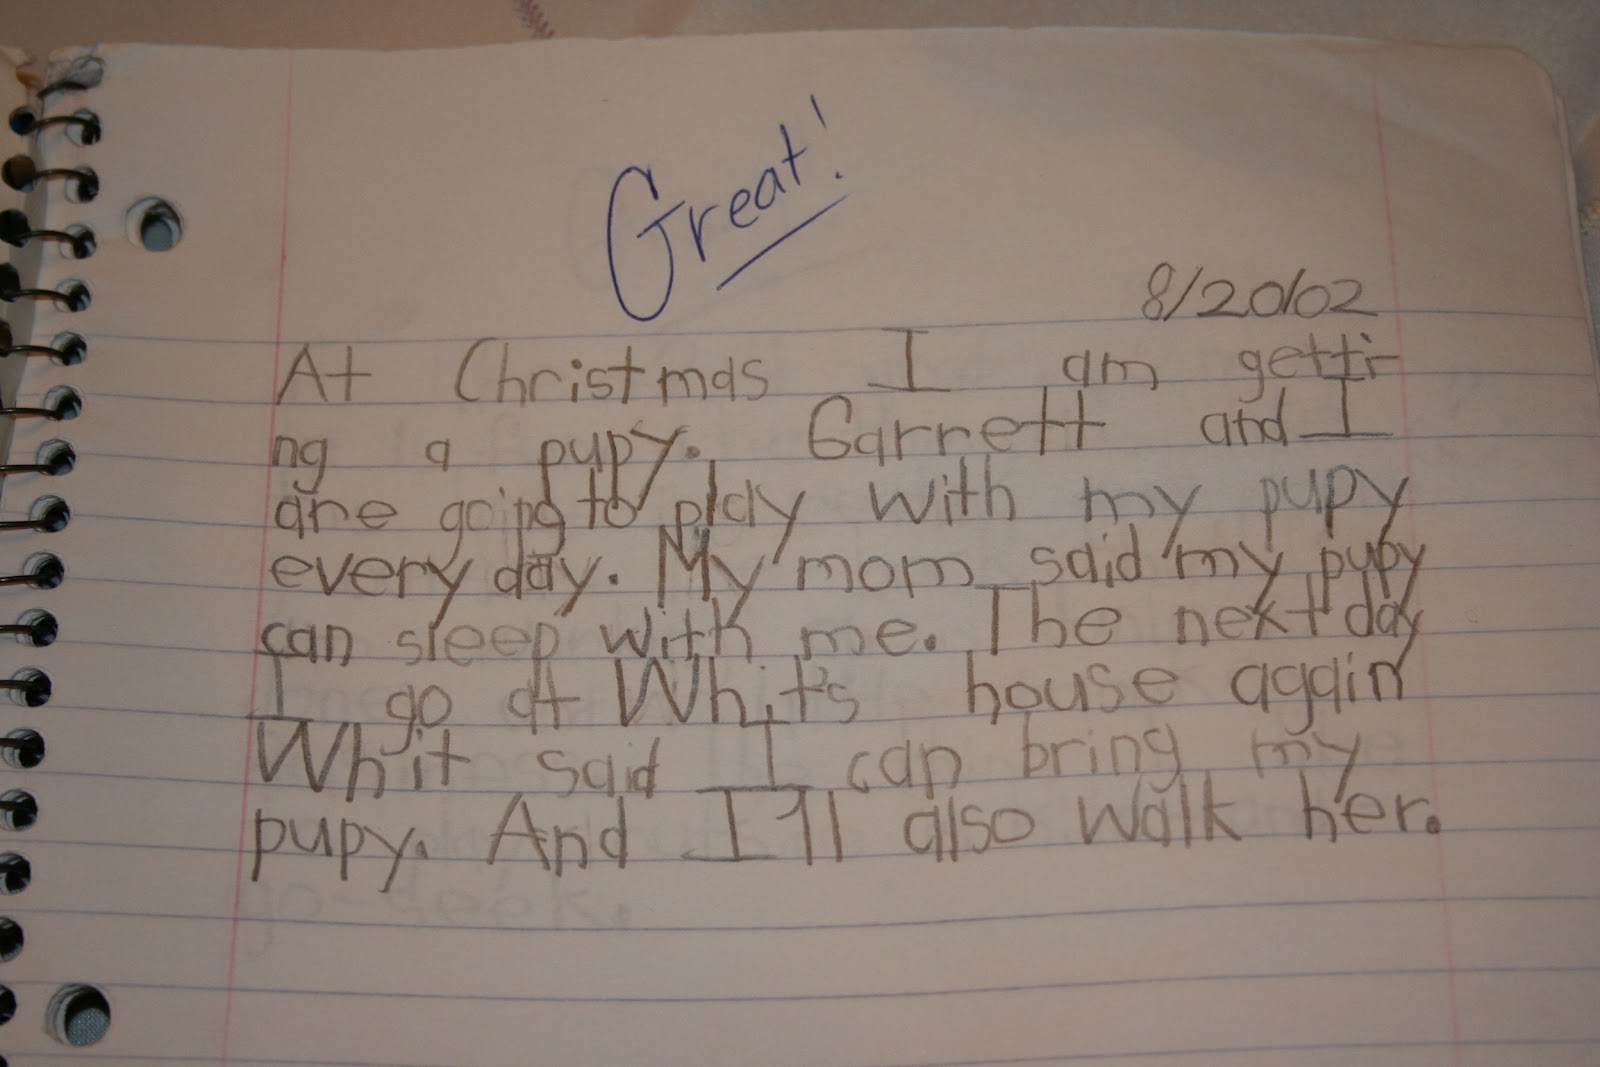 Great!
8/20/02
At Christmas I am getti-
ng a pupy. Garrett and I
are going to play with my pupy
every day. My mom said my pupy
can sleep with me. The next day
I go at Whit's house aggin
Whit said I can bring my
pupy. And I'll also walk her.
go-seek.